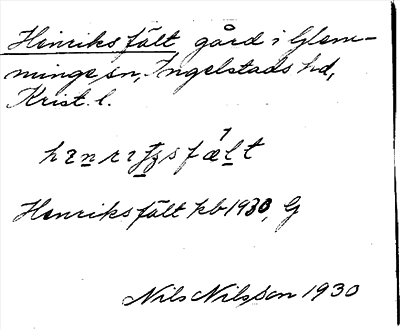 Henriksfält, gård i Glem-
minge sn, Ingelstads hd,
Krist. l.
Henriksfält kb 1930, G
Nils Nilsson 1930